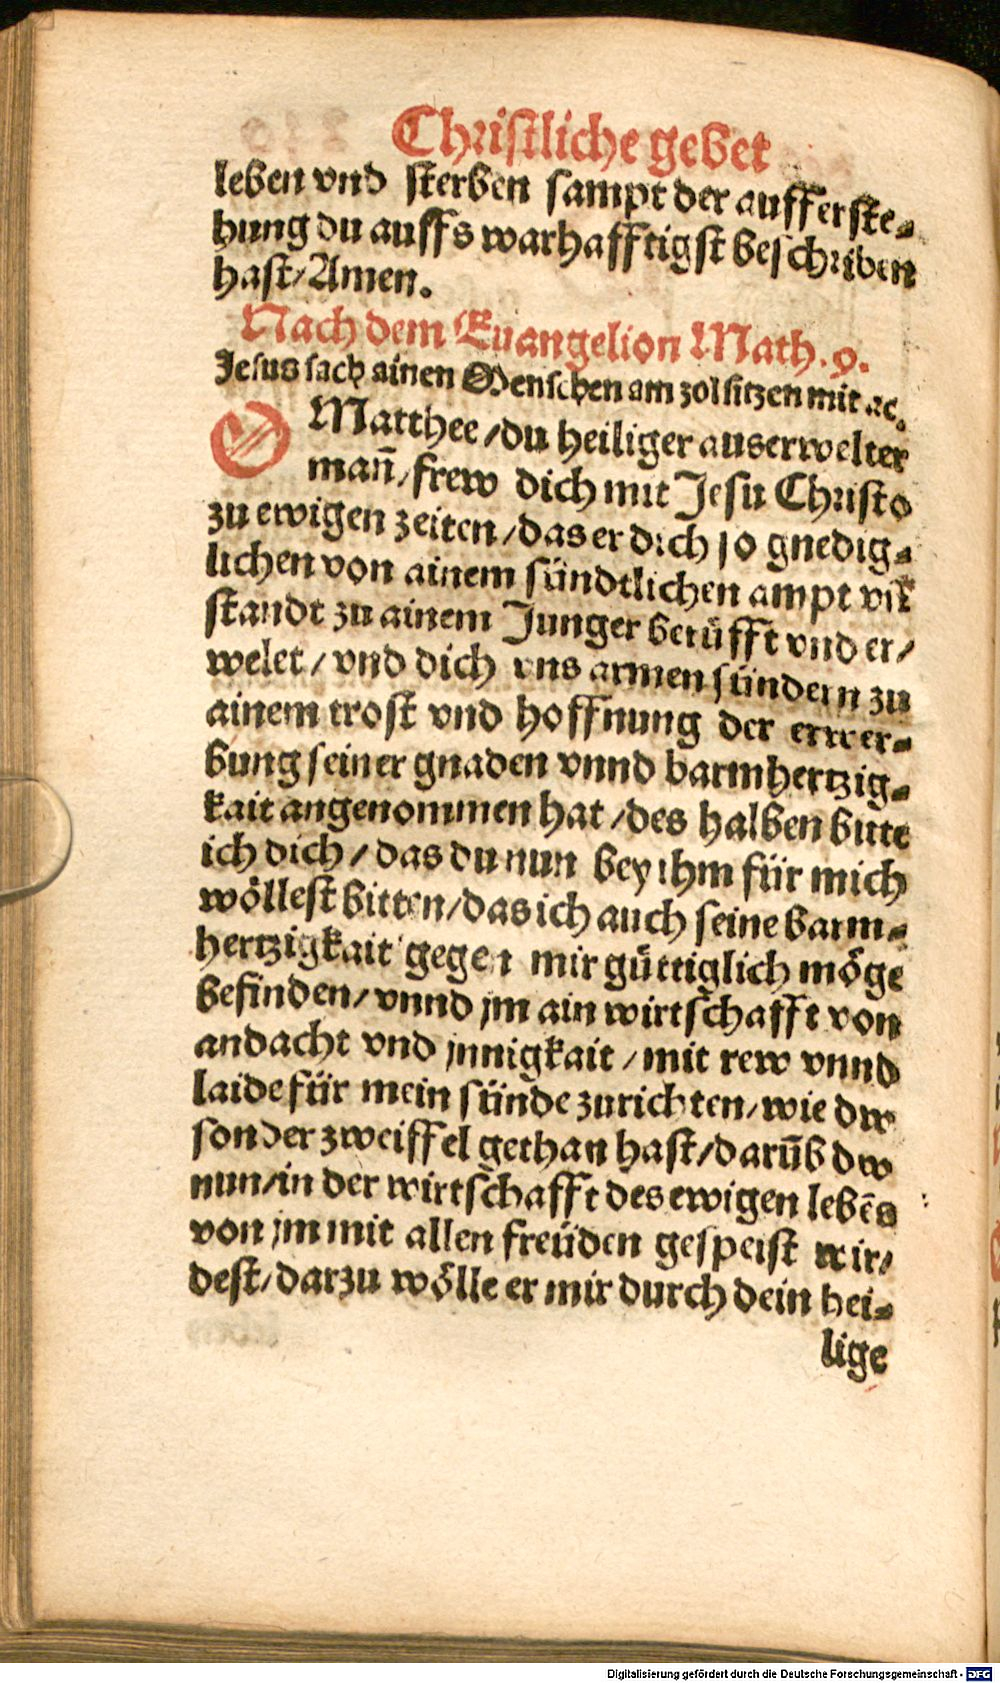 Christliche gebet
leben vnd sterben sampt der aufferste-
hung du auffs warhafftigst beschriben
hast/ Amen.
Nach dem Euangelion Math. 9.
Jesus sach ainen Menschen am zol sitzen mit ꝛc.
O Matthee/ du heiliger auserwelter
mañ/ frew dich mit Jesu Christo
zu ewigen zeiten/ das er dich so gnedig-
lichen von ainem sündtlichen ampt vñ
standt zu ainem Junger berüfft vnd er/
welet/ vnd dich vns armen sündern zu
ainem trost vnd hoffnung der erwer-
bung seiner gnaden vnnd barmhertzig-
kait angenommen hat/ des halben bitte
ich dich/ das du nun bey ihm für mich
wöllest bitten/ das ich auch seine barm-
hertzigkait gegen mir güttiglich möge
befinden/ vnnd jm ain wirtschafft von
andacht vnd jnnigkait/ mit rew vnnd
laide für mein sünde zurichten/ wie dw
sonder zweiffel gethan hast/ darūb dw
nun/ in der wirtschafft des ewigen lebēs
von jm mit allen freüden gespeist wir/
dest/ darzu wölle er mir durch dein hei-
lige
Digitalisierung gefördert durch die Deutsche Forschungsgemeinschaft - DFG